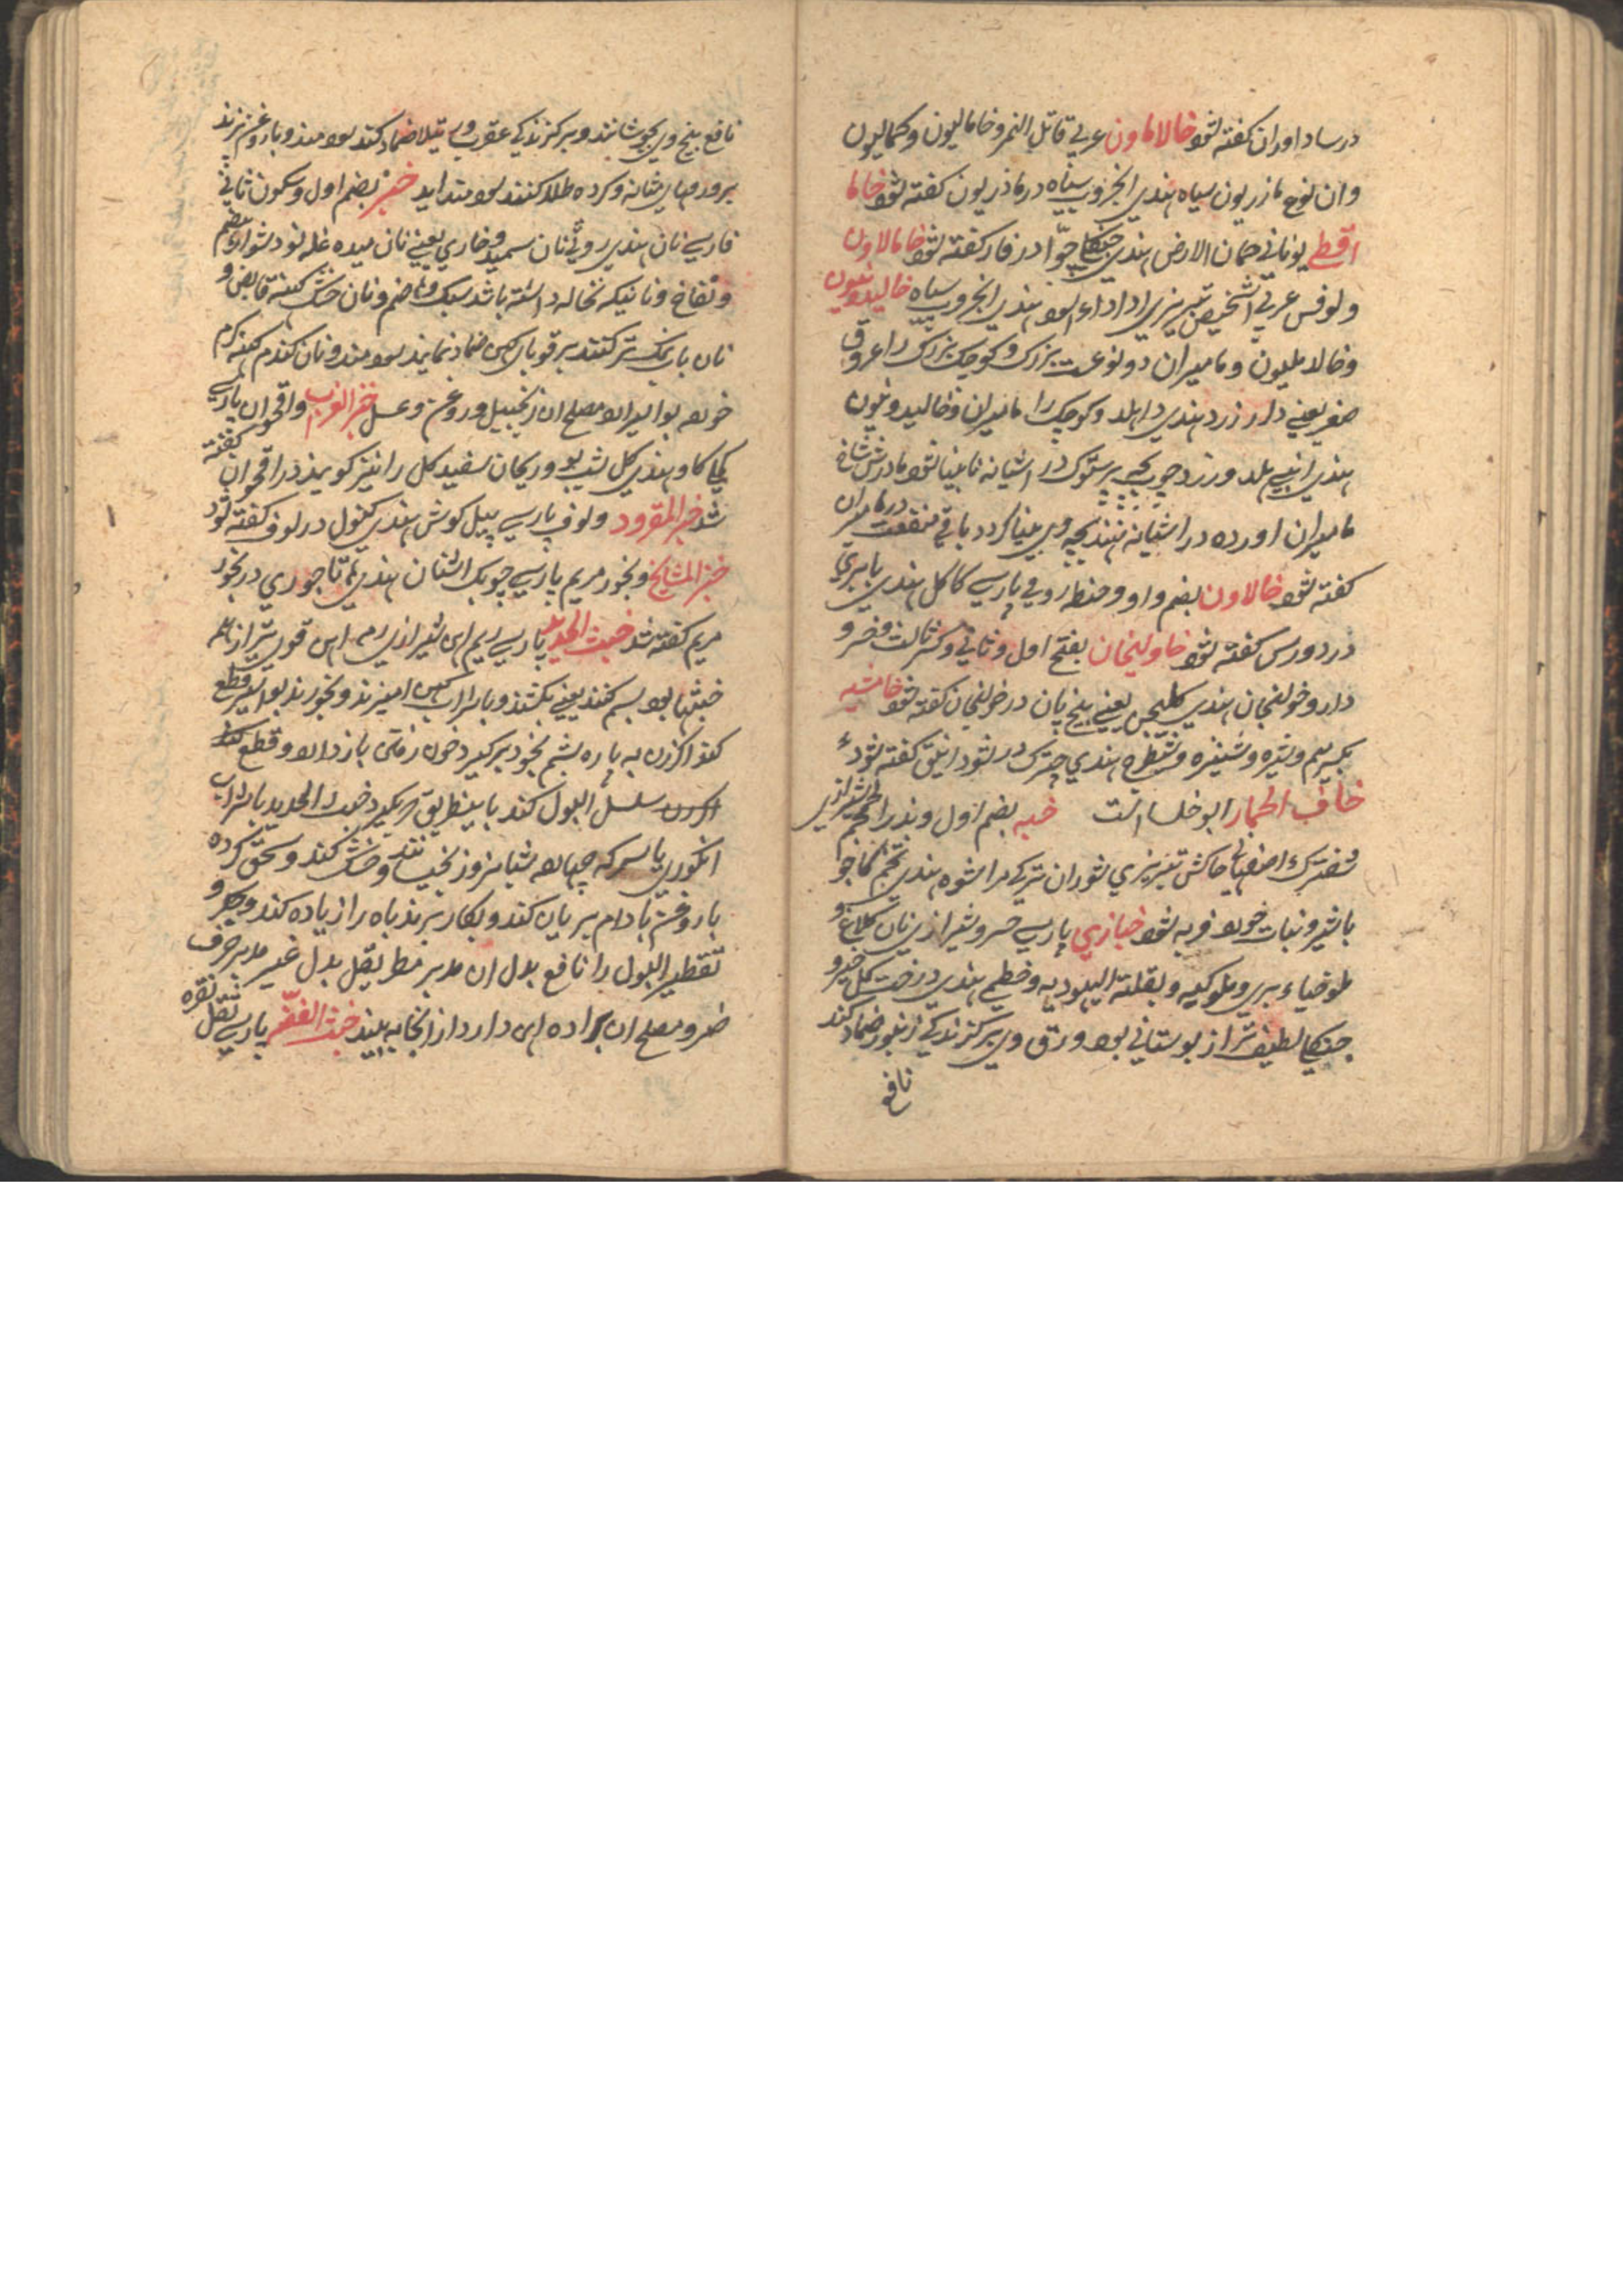 در ساداوران گفته شود خالاماون عربی قاتل النمر و خامالیون و کمالیون
وان نوع مازریون سیاه هندی انجروب سیاه در ماذریون گفته شود خاما
اقطی یونانی خمان الارض هندی جنگلی جوّا در فار گفته شود خامالاون
ولوقس عربی اشخیص تبریزی اداداء اسود هندی انجروب سیاه خالیدونیون
و خالاملیون و مامیران دو نوعست بزرگ و کوچک بزرگ را عروق
صفر یعنی دار زرد هندی داهلد و کوچک را مامیران و خالیدونیون
هندی انبی هلد و زرد چوب بچه پرستوک در اشیانه نابینا شود مادرش شاخ
مامیران اورده در اشیانه نهند بچه وی بینا کردد باقی منفعت در مامیران
گفته شود خالاون بضم واو و حنطه رومی پارسی کاکل هندی بابری
در دورس گفته شود خاولنجان بفتح اول و ثانی و کسر ثالث و خسرو
دارو خولنجان هندی کلیجن یعنی بیخ پان در خولنجان گفته شود خامشه
بکسر سیم و شیره و شیطرج هندی چترک در شود انیق گفته شود
خاف الحمار ابو خلسا است خبه بضم اول و بذر الخمخم شیرازی
شفترک اصفهانی خاکش تبریزی شوران ترکی مراشوه هندی تخم
با شیر و نبات خورد فربه شود خبازی پارسی خسرو شیرازی نان کلاغ و
ملوخیاء بری و ملوکیه و بقلته الیهودیه و خطمی هندی درخت گل خیرو
جنگلی لطیف تر از بوستانی بود ورق وی بر کزندکی زنبور ضماد کنند
نافع
نافع بیخ وی بجوشانند و بر کزندکی عقرب و رتیلا ضماد کنند سود مند و با روغن پزند
بر ورمهای مثانه و کرده طلا کنند سود مند اید خبز بضم اول و سکون ثانی
فارسی نان هندی روٹی نان سمید و خاری یعنی نان میده غله نود دشوار هضم
و نفاخ و نانیکه نخاله داشته باشد سبک و هاضم و نان خشک کهنه قابض و
نان با نمک تر کنند بر قوبای کهن ضماد نمایند سود مند و نان گندم کهنه گرم
خورد بواسیر اارد مصلح ان زنجبیل و روغن و عسل خبز الغراب و اقحوان پارسی
کاو هندی گل شب و ریحان سفید گل را نیز کویند در اقحوان گفته
شد خبز القرود و لوف پارسی پیل کوش هندی کنول در لوف گفته شود
خبز المشایخ و بخور مریم پارسی چوبک اشنان هندی هاتا جوری در بخور
مریم گفته شد خبث الحدید پارسی ریم اهن شیرازی رمه اهن قوی تر از همه
خبثها بود بسم کنند یعنی بکشند و با شراب کهن امیزند و بخورند بواسیر قطع
کند اگر زن به پاره پشم بخود برگیرد خون رفتن باز دارد و قطع کند
سلسل البول کند باینطریق که بگیرد خبث الحدید با شراب
انگوری یا سرکه چهارده شبانروز بخیسانند و خشک کند و سحق کرده
با روغن بادام بریان کند و بکار برند باه را زیاده کند و
تقطیر البول را نافع بدل ان مدبر بدل غیر مدبر خزف
ضر و مصلح ان براده اهن دارد از انجا به بیند خبث الفضه پارسی ثقل نقره